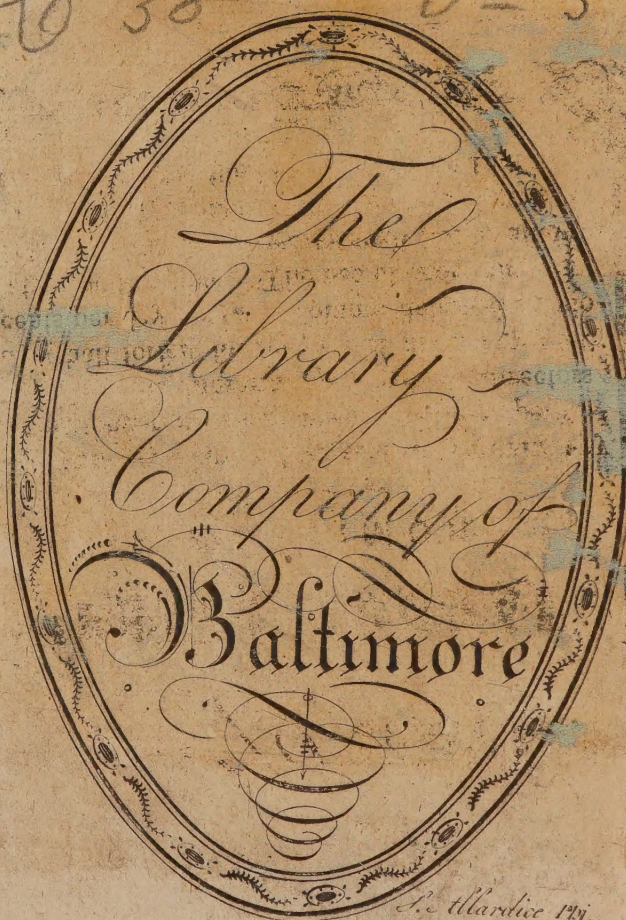 The
Library
Company of
Baltimore
Allardice